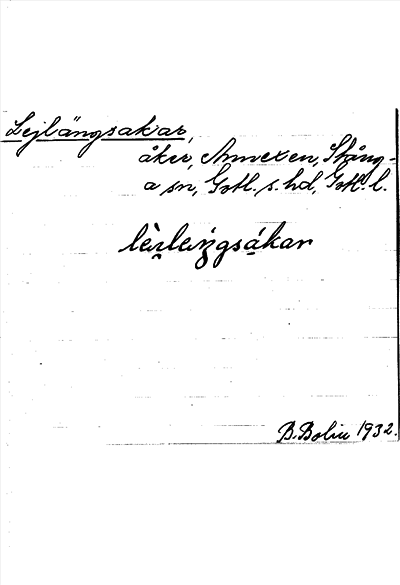 Lejlängsakar,
åker, Annexen, Stång-
a sn, Gotl. s. hd, Gotl. l.
B. Bolin 1932.